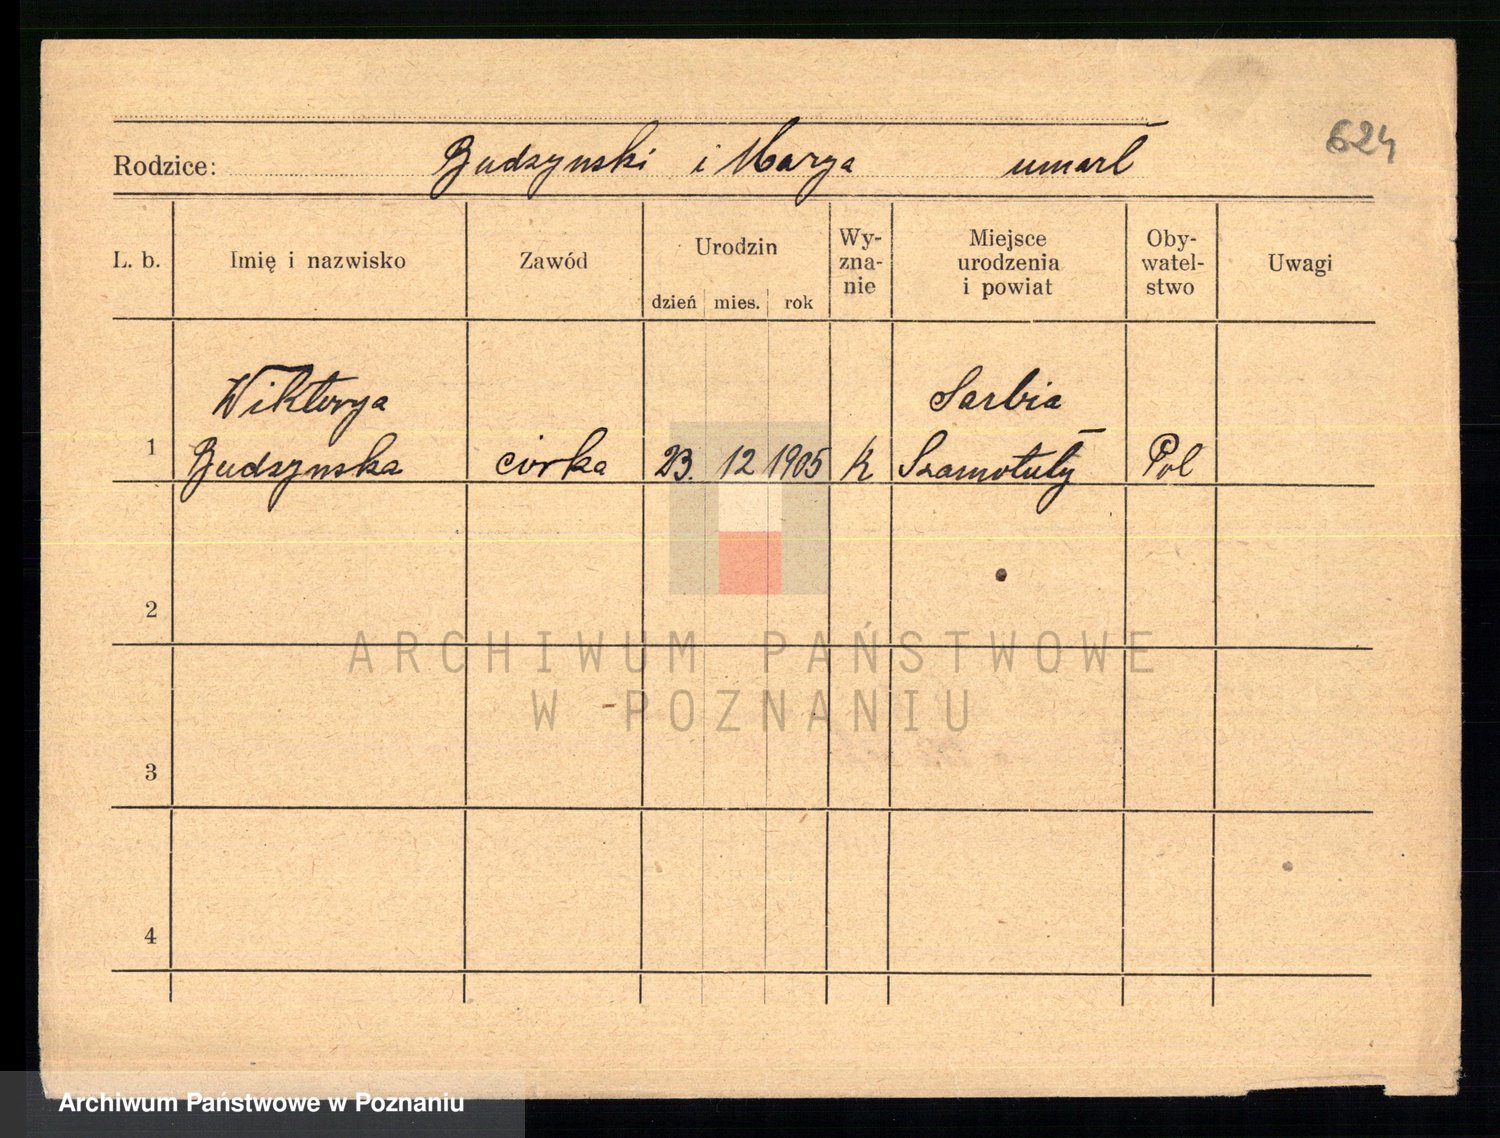 624
Rodzice: Budzynski i Marya umarł
L. b. Imię i nazwisko Zawód Urodzin dzień mies. rok Wy-zna-nie Miejsce urodzenia i powiat Oby-watel-stwo Uwagi
Wiktorya Sarbia
1 Budzynska córka 23. 12 1905 k Szamotuły Pol
2
ARCHIWUM PAŃSTWOWE
W POZNANIU
3
4
Archiwum Państwowe w Poznaniu